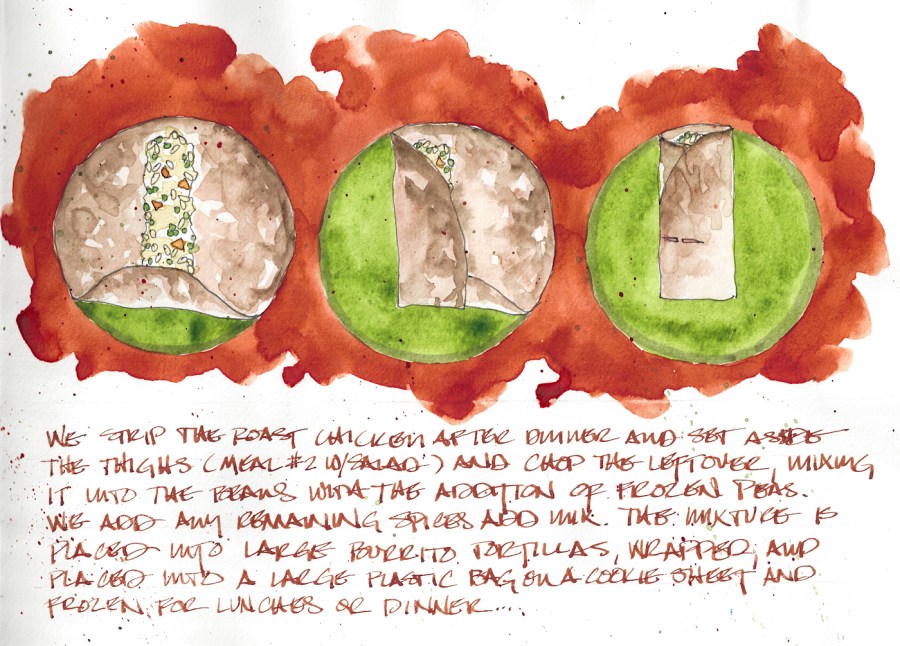 WE STRIP THE ROAST CHICKEN AFTER DINNER AND SET ASIDE
THE THIGHS (MEAL #2 W/SALAD) AND CHOP THE LEFTOVER, MIXING
IT INTO THE BEANS WITH THE ADDITION OF FROZEN PEAS.
WE ADD ANY REMAINING SPICES AND MIX. THE MIXTURE IS
PLACED INTO LARGE BURRITO TORTILLAS, WRAPPED, AND
PLACED INTO A LARGE PLASTIC BAG ON A COOKIE SHEET AND
FROZEN FOR LUNCHES OR DINNER...